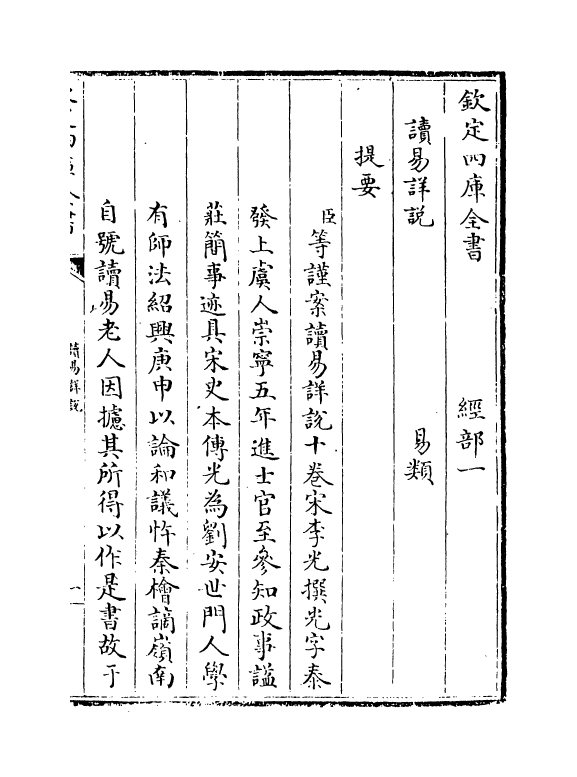 欽定四庫全書　經部一
讀易詳説　易類
提要
臣等謹案讀易詳說十卷宋李光撰光字泰
發上虞人崇寧五年進士官至參知政事諡
莊簡事迹具宋史本傳光為劉安世門人學
有師法紹興庚申以論和議忤秦檜謫嶺南
自號讀易老人因攄其所得以作是書故于
讀易詳說
一